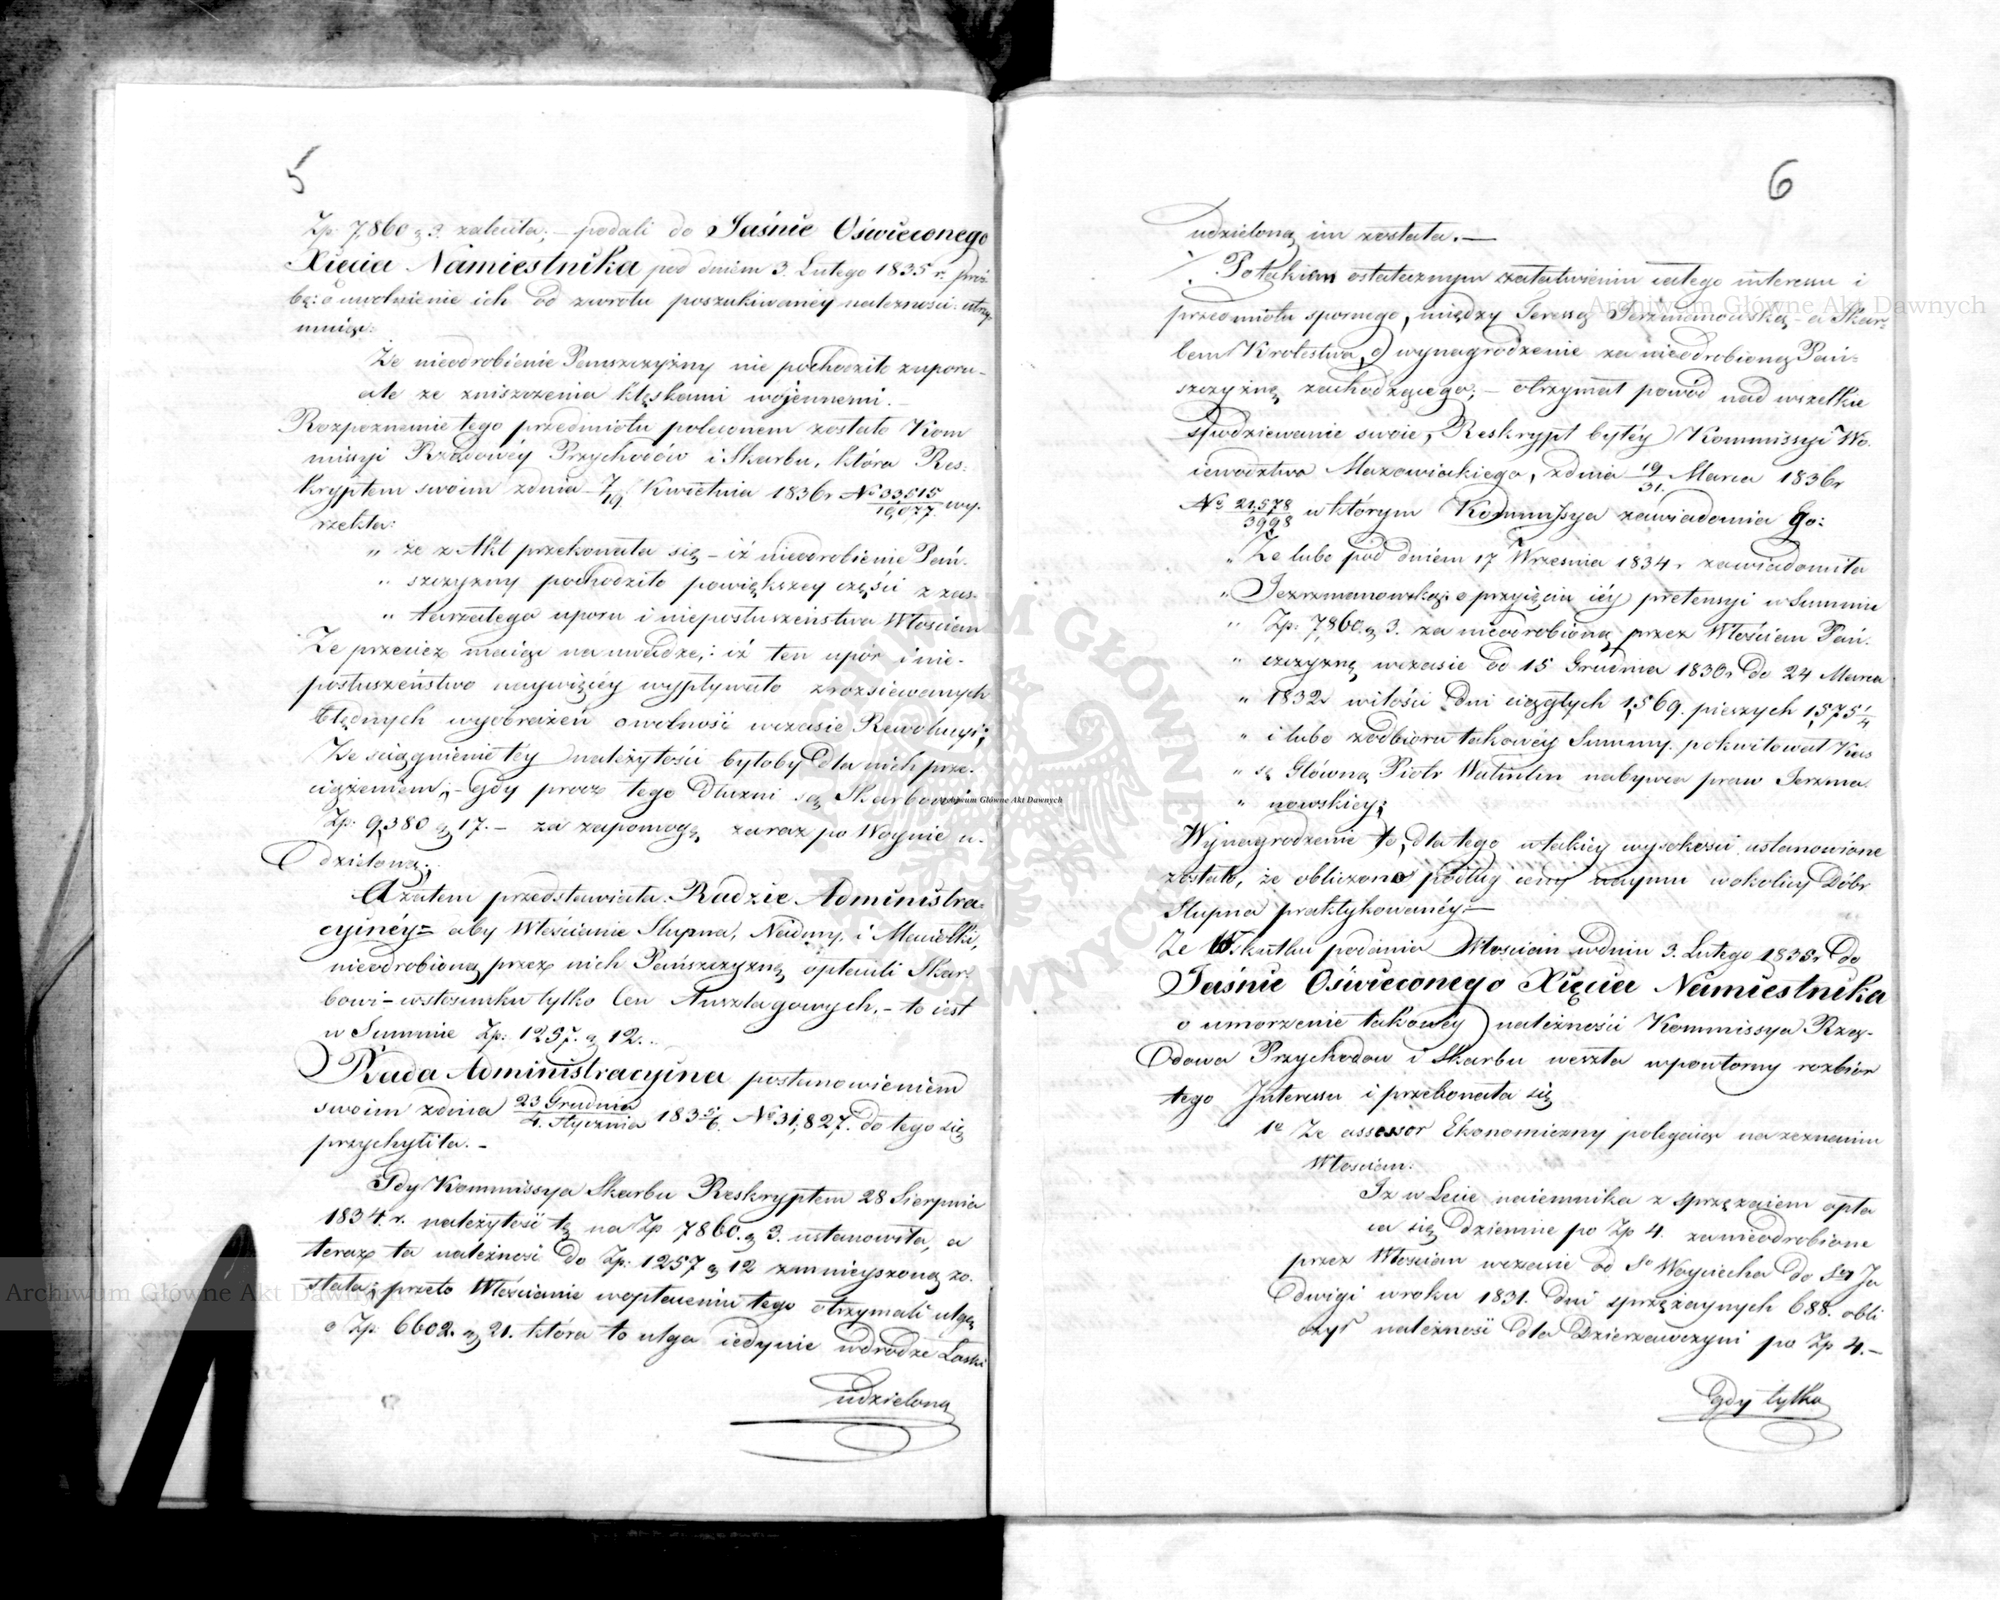 5
Zp: 7,860 g 3. zaliczta; – podali do Jaśnie Oświeconego
Xięcia Namiestnika pod dniem 3. Lutego 1835 r. proź-
bę: o uwolnienie ich od zwrotu poszukiwanéy należności: utrzy-
muiąc:
Że nieodrobienie Pańszczyzny nie pochodziło z uporu–
ale ze zniszczenia klęskami wojennemi.–
Rozpoznanie tego przedmiotu poleconem zostało Kom
missyi Rządowéy Przychodów i Skarbu, która Res-
kryptem swoim z dnia 7/19 Kwietnia 1836 r No 33,515/10,077 wy-
rzekła:
„ że z Akt przekonała się – iż nieodrobienie Pań-
„ szczyzny pochodziło powiększey części z zas-
„ tarzałego uporu i nieposłuszeństwa Włościan
Że przecież maiąc na uwadze,: iż ten upór i nie-
posłuszeństwo naywięcéy wypływało z rozsiewanych
błędnych wyobrażeń o wolności w czasie Rewolucyi;
Że sciągnienie téy należytości byłoby dla nich prze-
ciążeniem; – Gdy procz tego dłużni są Skarbowi
Zp: 9,380 g 17. – za zapomogę zaraz po Woynie u-
dzieloną;
A zatem przedstawiała Radzie Administra-
cyinéy= aby Włościanie Słupna, Neidny, i Maciołki,
nieodrobioną przez nich Pańszczyznę opłacili Skar-
bowi – w stosunku tylko Cen Anszlagowych, – to iest
w Summie Zp: 1257. g 12..
Rada Administracyina postanowieniem
swoim z dnia 23 Grudnia/4. Stycznia 1835/6. No 31,827. do tego się
przychyliła. –
Gdy Kommissya Skarbu Reskryptem 28 Sierpnia
1834. r. należytość tę na Zp 7860. g 3. ustanowiła, a
teraz ta należność do Zp: 1257 g 12 zmnieyszoną zo-
stała; przeto Włościanie w opłaceniu tego otrzymali ulgę
o Zp: 6602. g 21. która to ulga iedynie w drodze Łaski
udzieloną
6
udzieloną im została. –
Po takiem ostatecznym załatwieniu całego interessu i
przedmiotu spornego, między Teressą Jerzmanowską – a Skar-
bem Krolestwa, o wynagrodzenie za nieodrobioną Pań-
szczyznę zachodzącego; – otrzymał powód nad wszelkie
spodziewanie swoie, Reskrypt byłéy Kommissyi Wo-
iewództwa Mazowieckiego, z dnia 19/31. Marca 1836 r
No 21,578/3998 w którym Kommissya zawiadomia Go:
„ Że lubo pod dniem 17 Września 1834 r zawiadomiła
„ Jerzmanowską: o przyięciu iéy pretensyi w Summie
„ Zp: 7,860. g 3. za nieodrobioną przez Włościan Pań-
„ szczyznę w czasie od 15 Grudnia 1830 r do 24 Marca
„ 1832 r w ilości dni ciągłych 1,569. pieszych 1,575 1/4
„ i lubo z odbioru takowéy Summy. pokwitował Kas
„ sę Główną Piotr Walentin nabywca praw Jerzma-
„ nowskiey;
Wynagrodzenie to, dla tego w takiéy wysokości ustanowione
zostało, że obliczono podług ceny naymu w okolicy Dóbr
Słupna praktykowanéy: –
Że W skutku podania Włościan w dniu 3. Lutego 1835 r do
Jaśnie Oświeconego Xięcia Namiestnika
o umorzenie takowéy należności Kommissya Rzą-
dowa Przychodow i Skarbu weszła w powtorny rozbiór
tego Interessu i przekonała się
1o Że assessor Ekonomiczny polegaiąc na zeznaniu
Włościan:
Iz w Lecie naiemnika z sprzężaiem opła
ca się dziennie po Zp 4. za nieodrobione
przez Włościan w czasie od So Woyciecha do Sej Ja
dwigi w roku 1831. dni sprzężaynych 688. obli
czył należność dla Dzierżawczyni po Zp 4. –
gdy tylko
Archiwum Główne Akt Dawnych
Archiwum Główne Akt Dawnych
Archiwum Główne Akt Dawnych
ARCHIWUM GŁÓWNE AKT DAWNYCH